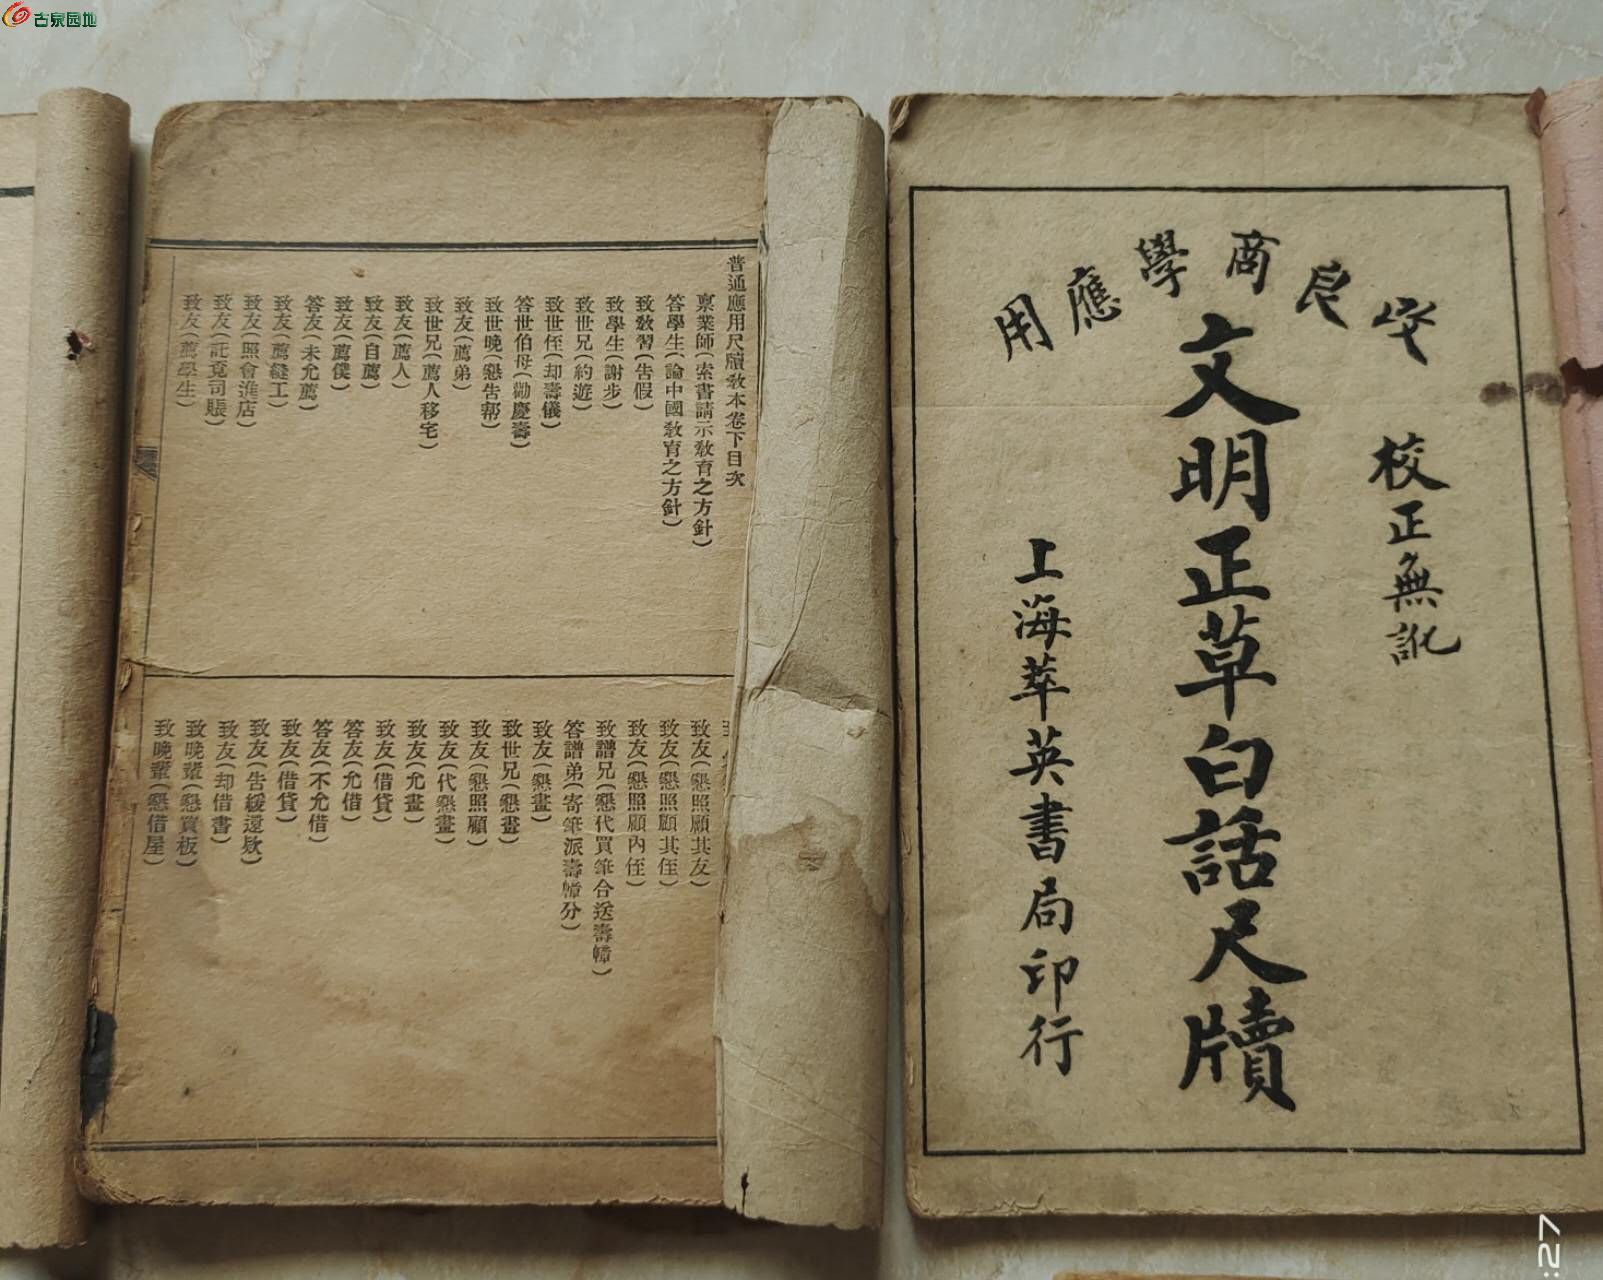 古泉园地
普通應用尺牘教本卷下目次
稟業師(索書請示教育之方針)
答學生(論中國教育之方針)
致教習(告假)
致學生(謝步)
致世兄(約遊)
致世侄(却壽儀)
答世伯母(勸慶壽)
致世晚(懇告幫)
致友(薦弟)
致世兄(薦人移宅)
致友(薦人)
致友(自薦)
致友(薦僕)
答友(未允薦)
致友(薦縫工)
致友(照會進店)
致友(託覓司賬)
致友(薦學生)
致友(懇照顧其友)
致友(懇照顧其侄)
致友(懇照顧內侄)
致譜兄(懇代買筆合送壽幛)
答譜弟(寄筆派壽幛分)
致友(懇畫)
致世兄(懇畫)
致友(懇照顧)
致友(代懇畫)
致友(允畫)
致友(借貸)
答友(允借)
答友(不允借)
致友(借貸)
致友(告緩還欵)
致友(却借書)
致晚輩(懇賞板)
致晚輩(懇借屋)
商學應用
校正無訛
文明正草白話尺牘
上海萃英書局印行
:27